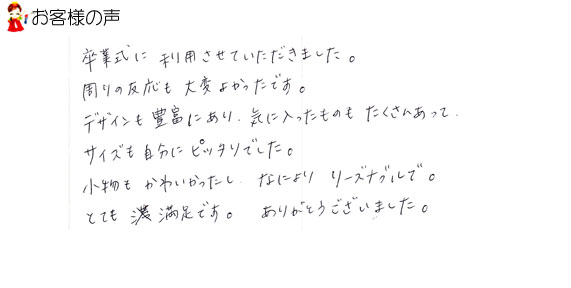 お客様の声
卒業式に利用させていただきました。
周りの反応も大変よかったです。
デザインも豊富にあり、気に入ったものもたくさんあって、
サイズも自分にピッタリでした。
小物もかわいかったし、なによりリーズナブルで。
とても満足です。 ありがとうございました。